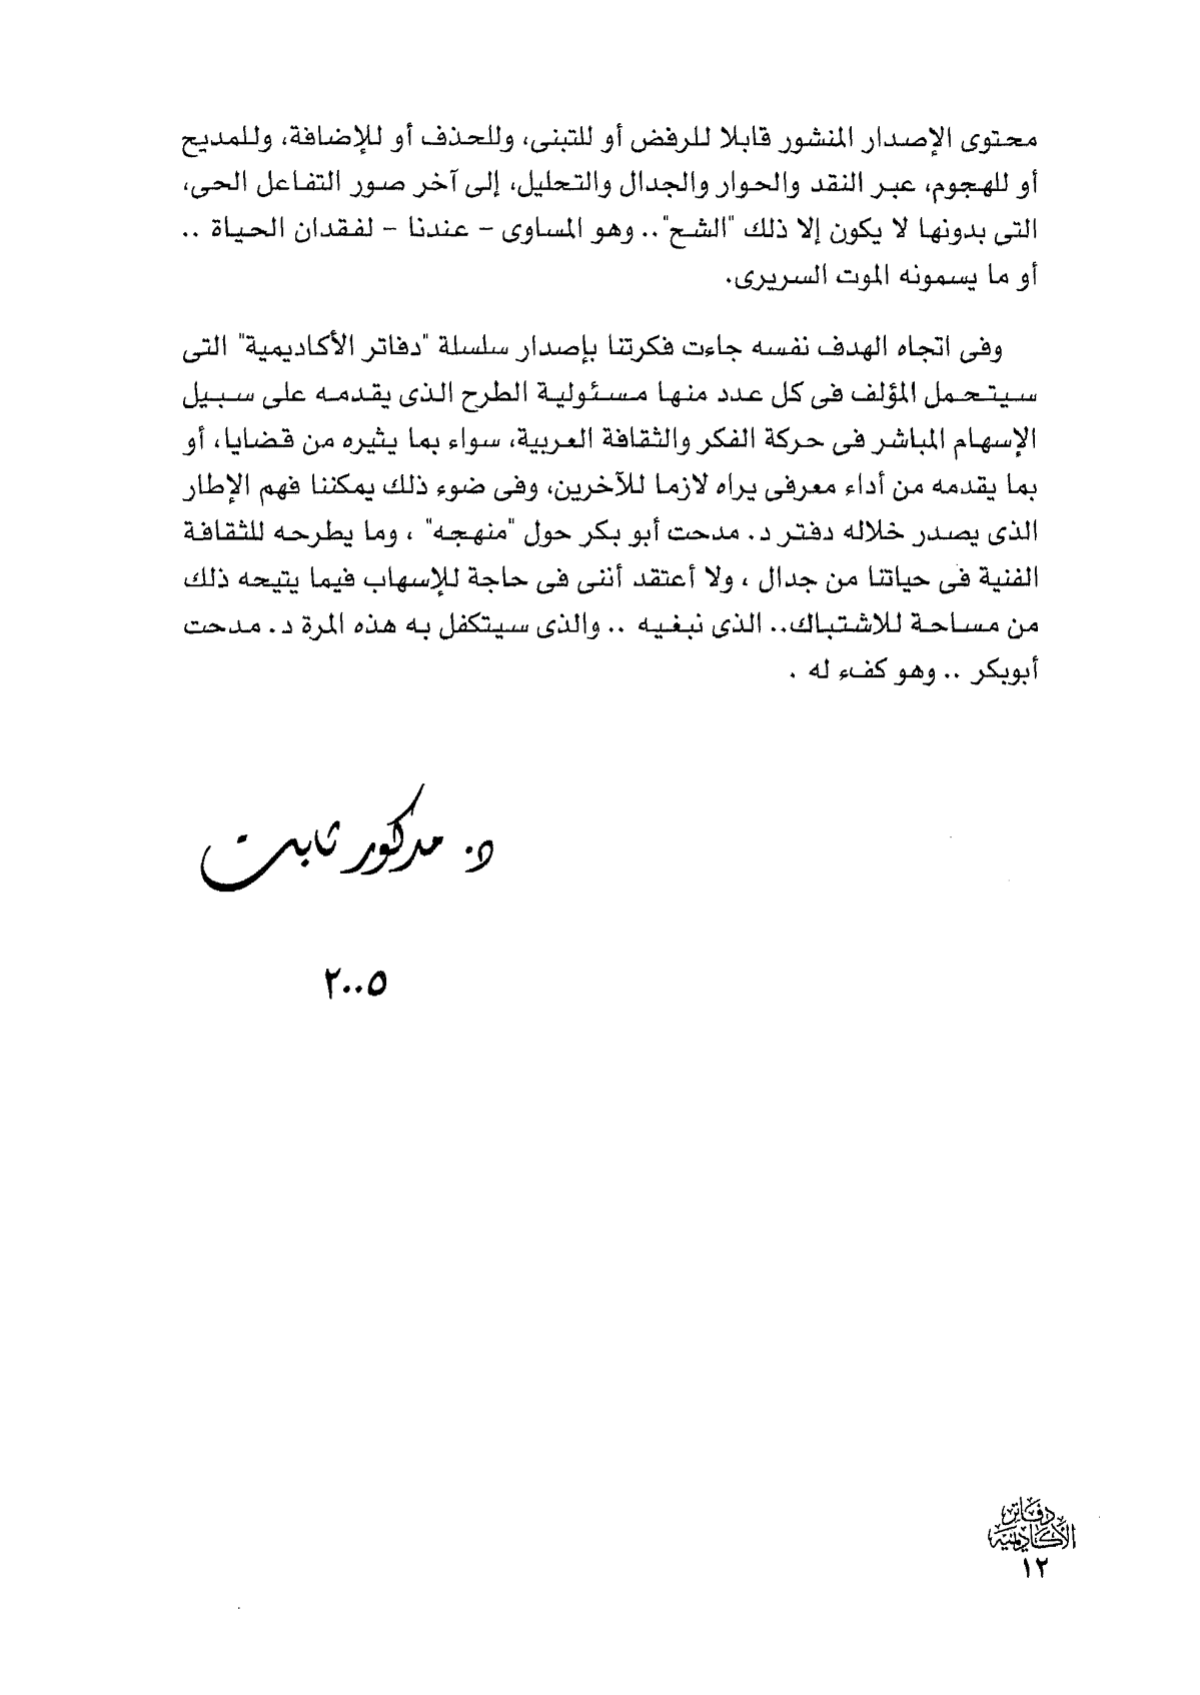 محتوى الإصدار المنشور قابلا للرفض أو للتبنى، وللحذف أو للإضافة، وللمديح
أو للهجوم، عبر النقد والحوار والجدال والتحليل، إلى آخر صور التفاعل الحى،
التى بدونها لا يكون إلا ذلك "الشح".. وهو المساوى - عندنا - لفقدان الحياة ..
أو ما يسمونه الموت السريرى.
وفى اتجاه الهدف نفسه جاءت فكرتنا بإصدار سلسلة "دفاتر الأكاديمية" التى
سيتحمل المؤلف فى كل عدد منها مسئولية الطرح الذى يقدمه على سبيل
الإسهام المباشر فى حركة الفكر والثقافة العربية، سواء بما يثيره من قضايا، أو
بما يقدمه من أداء معرفى يراه لازما للآخرين، وفى ضوء ذلك يمكننا فهم الإطار
الذى يصدر خلاله دفتر د. مدحت أبو بكر حول "منهجه" ، وما يطرحه للثقافة
الفنية فى حياتنا من جدال ، ولا أعتقد أننى فى حاجة للإسهاب فيما يتيحه ذلك
من مساحة للاشتباك.. الذى نبغيه .. والذى سيتكفل به هذه المرة د. مدحت
أبوبكر .. وهو كفء له .
د. مدكور ثابت
٢٠٠٥
دفاتر
الأكاديمية
١٢